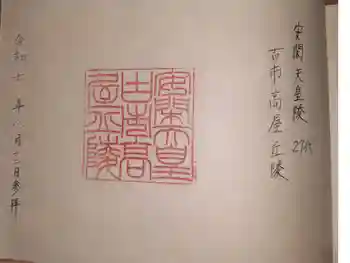 安閑天皇陵 27代
古市高屋丘陵
安閑天皇
古市高
屋丘陵
令和 七 年 八 月 十三日参拝